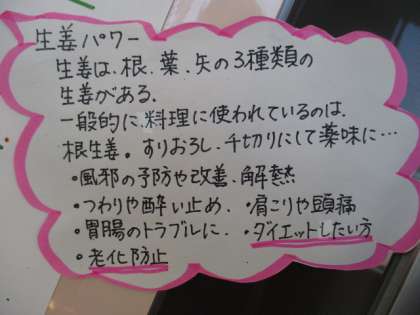 生姜パワー
生姜は、根、葉、矢の3種類の
生姜がある.
一般的に、料理に使われているのは、
根生姜。すりおろし、千切りにして薬味に…
・風邪の予防や改善、解熱
・つわりや酔い止め、・肩こりや頭痛
・胃腸のトラブルに、・ダイエットしたい方
・老化防止